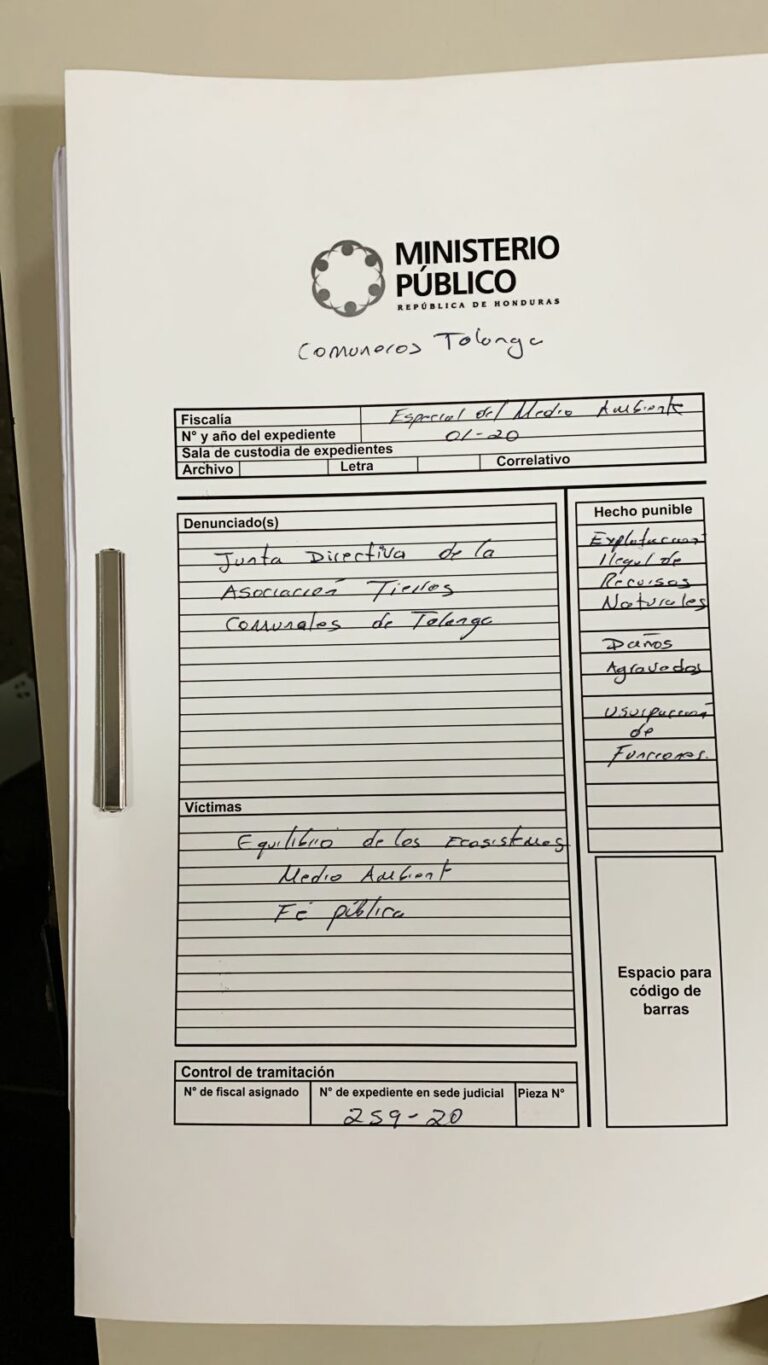 MINISTERIO
PÚBLICO
REPÚBLICA DE HONDURAS
Comuneros Tolanga
Fiscalía Especial del Medio Ambiente
N° y año del expediente 01-20
Sala de custodia de expedientes
Archivo Letra Correlativo
Denunciado(s)
Junta Directiva de la
Asociación Tierras
Comunales de Tolanga
Hecho punible
Explotación
Ilegal de
Recursos
Naturales
Daños
Agravados
Usurpación
de
Funciones.
Víctimas
Equilibrio de los Ecosistemas
Medio Ambient
Fé pública
Espacio para
código de
barras
Control de tramitación
N° de fiscal asignado N° de expediente en sede judicial Pieza N°
259-20